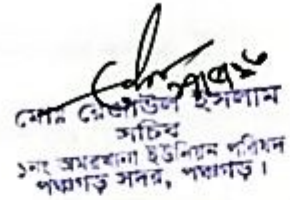 মোঃ রেজাউল ইসলাম
সচিব
১নং অমরখানা ইউনিয়ন পরিষদ
পঞ্চগড় সদর, পঞ্চগড়।